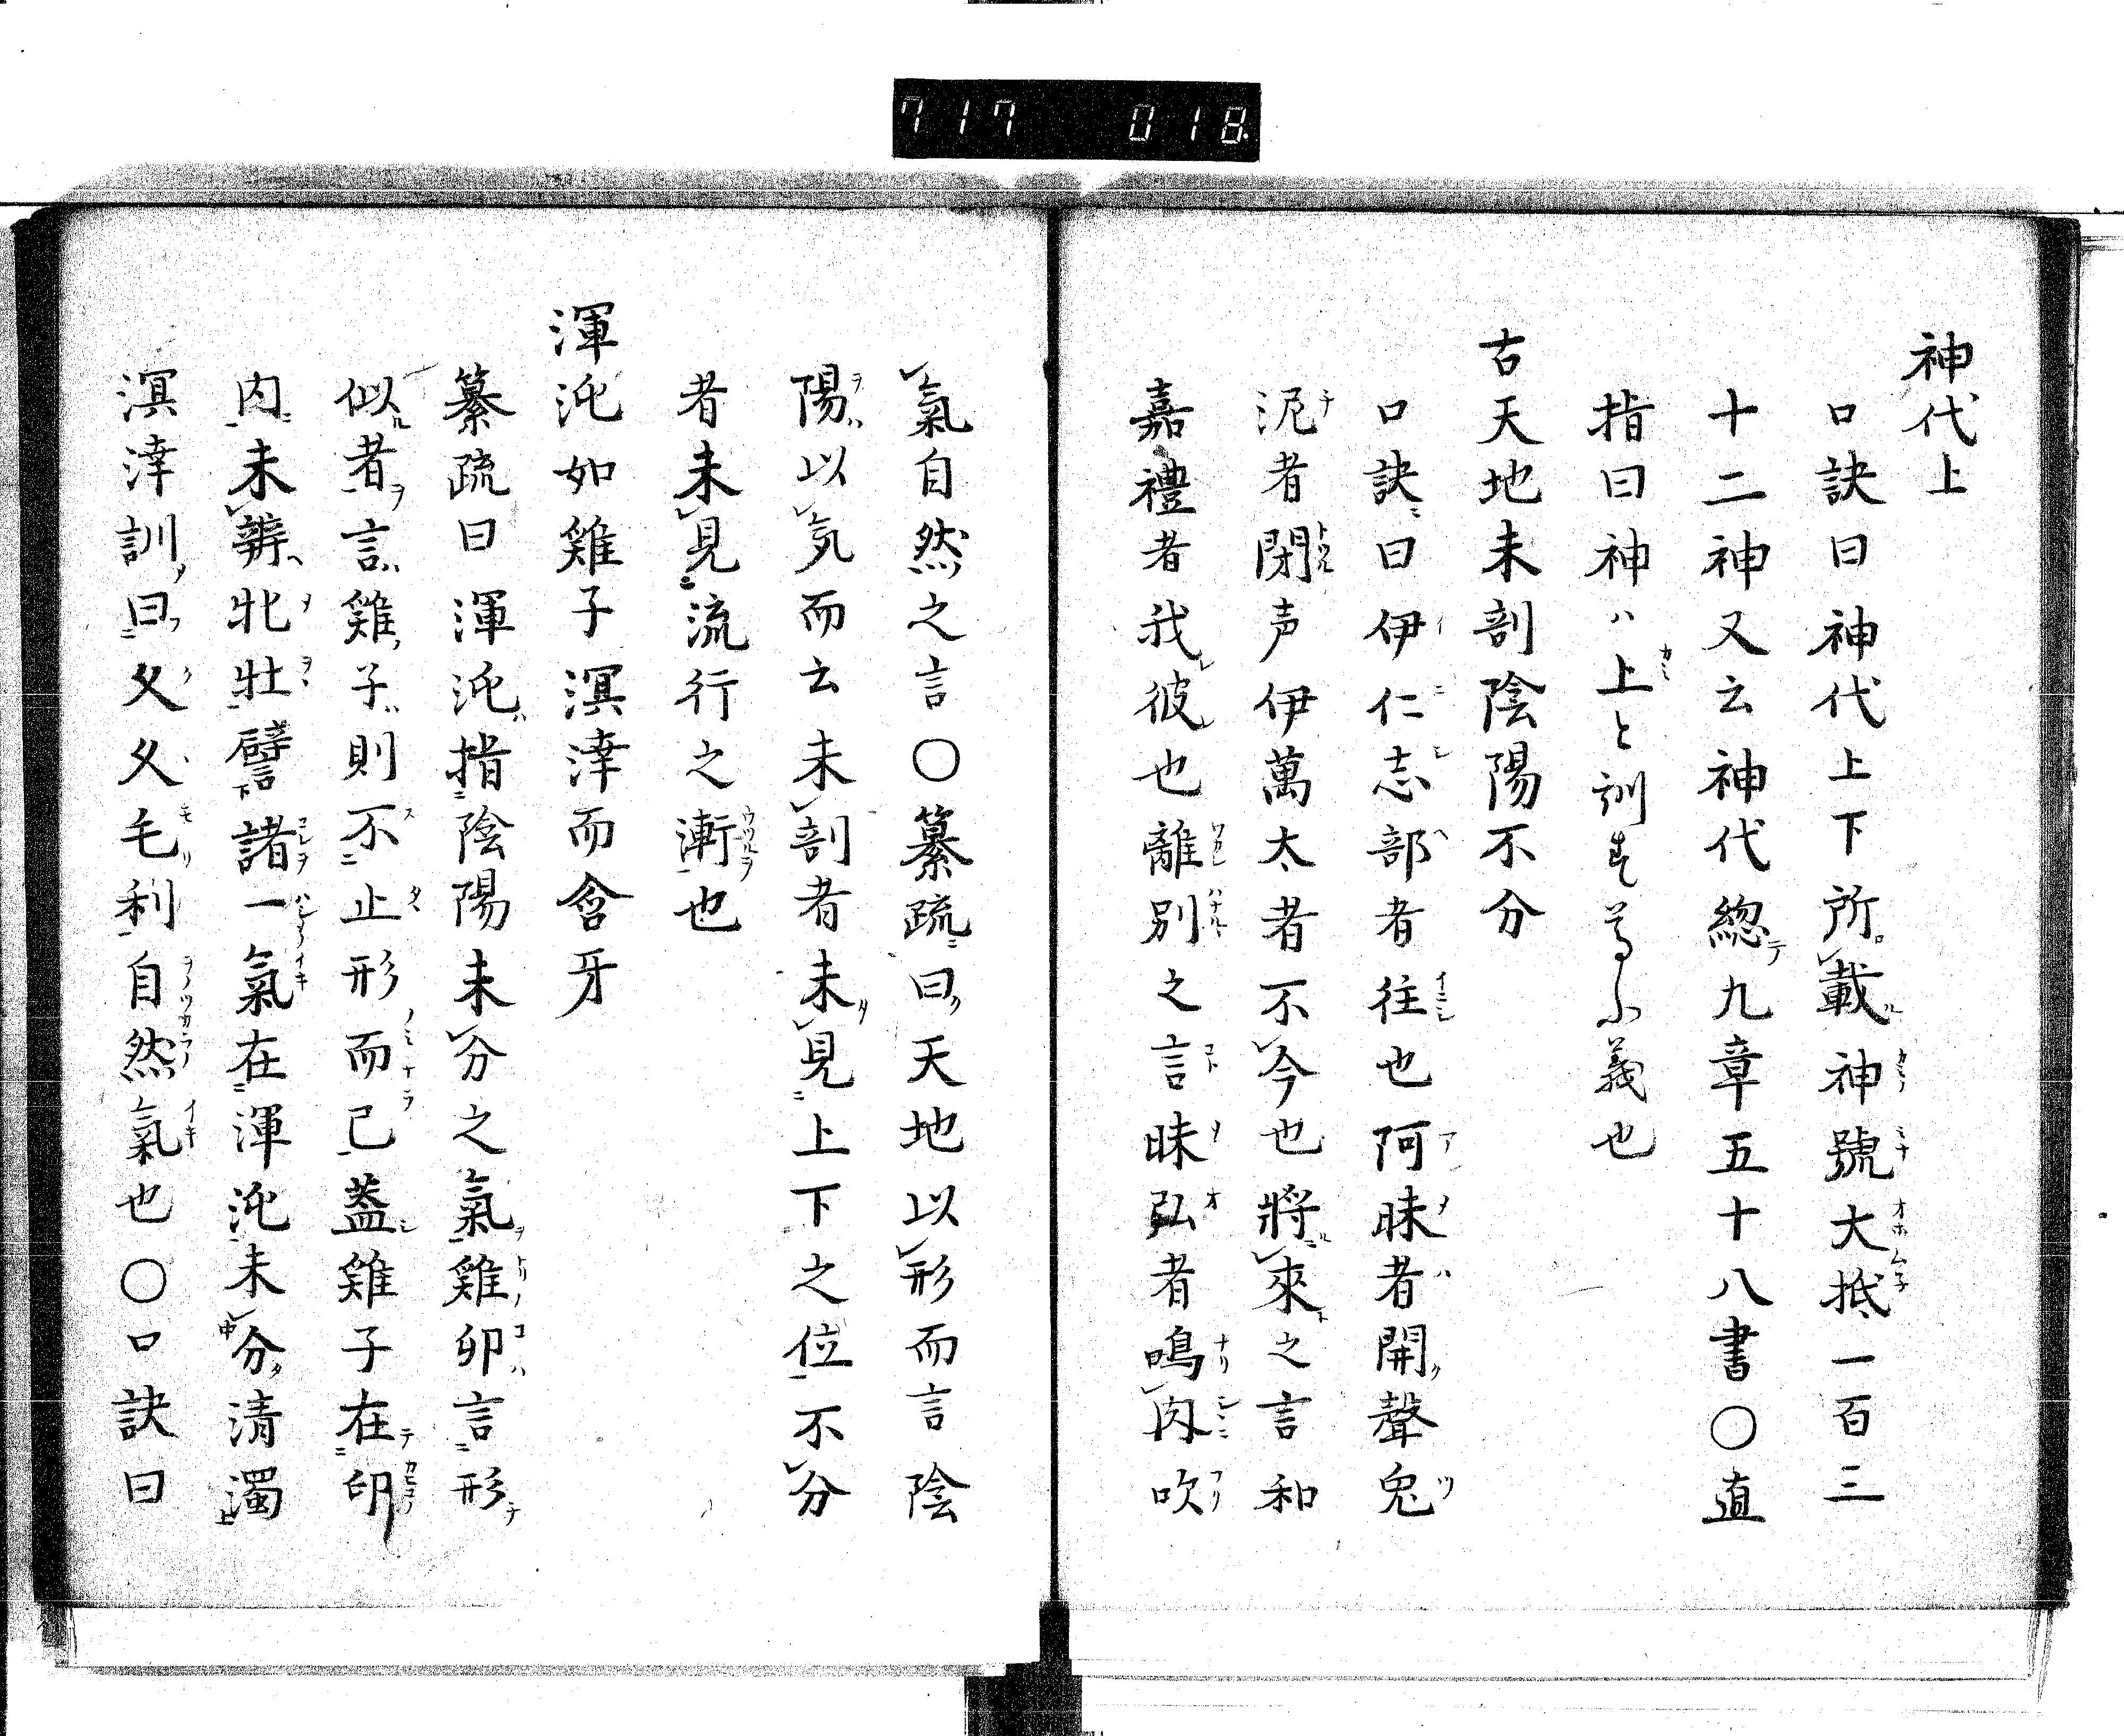 717 018
神代上
口訣曰神代上下所載神號大抵一百三
十二神又云神代総九章五十八書〇直
指曰神ハ上と訓す尊ふ義也
古天地未剖陰陽不分
口訣曰伊仁志部者往也阿昧者開聲兔
泥者閉声伊萬太者不今也將來之言和
嘉禮者我彼也離別之言昧弘者鳴肉吹
氣自然之言〇纂疏曰天地以形而言陰
陽以気而云未剖者未見上下之位不分
者未見流行之漸也
渾沌如雞子溟涬而含牙
纂疏曰渾沌指陰陽未分之氣雞卵言形
似者言雞子則不止形而已蓋雞子在卵
内未辨牝牡譬諸一氣在渾沌未分清濁
溟涬訓曰久久毛利自然氣也〇口訣曰